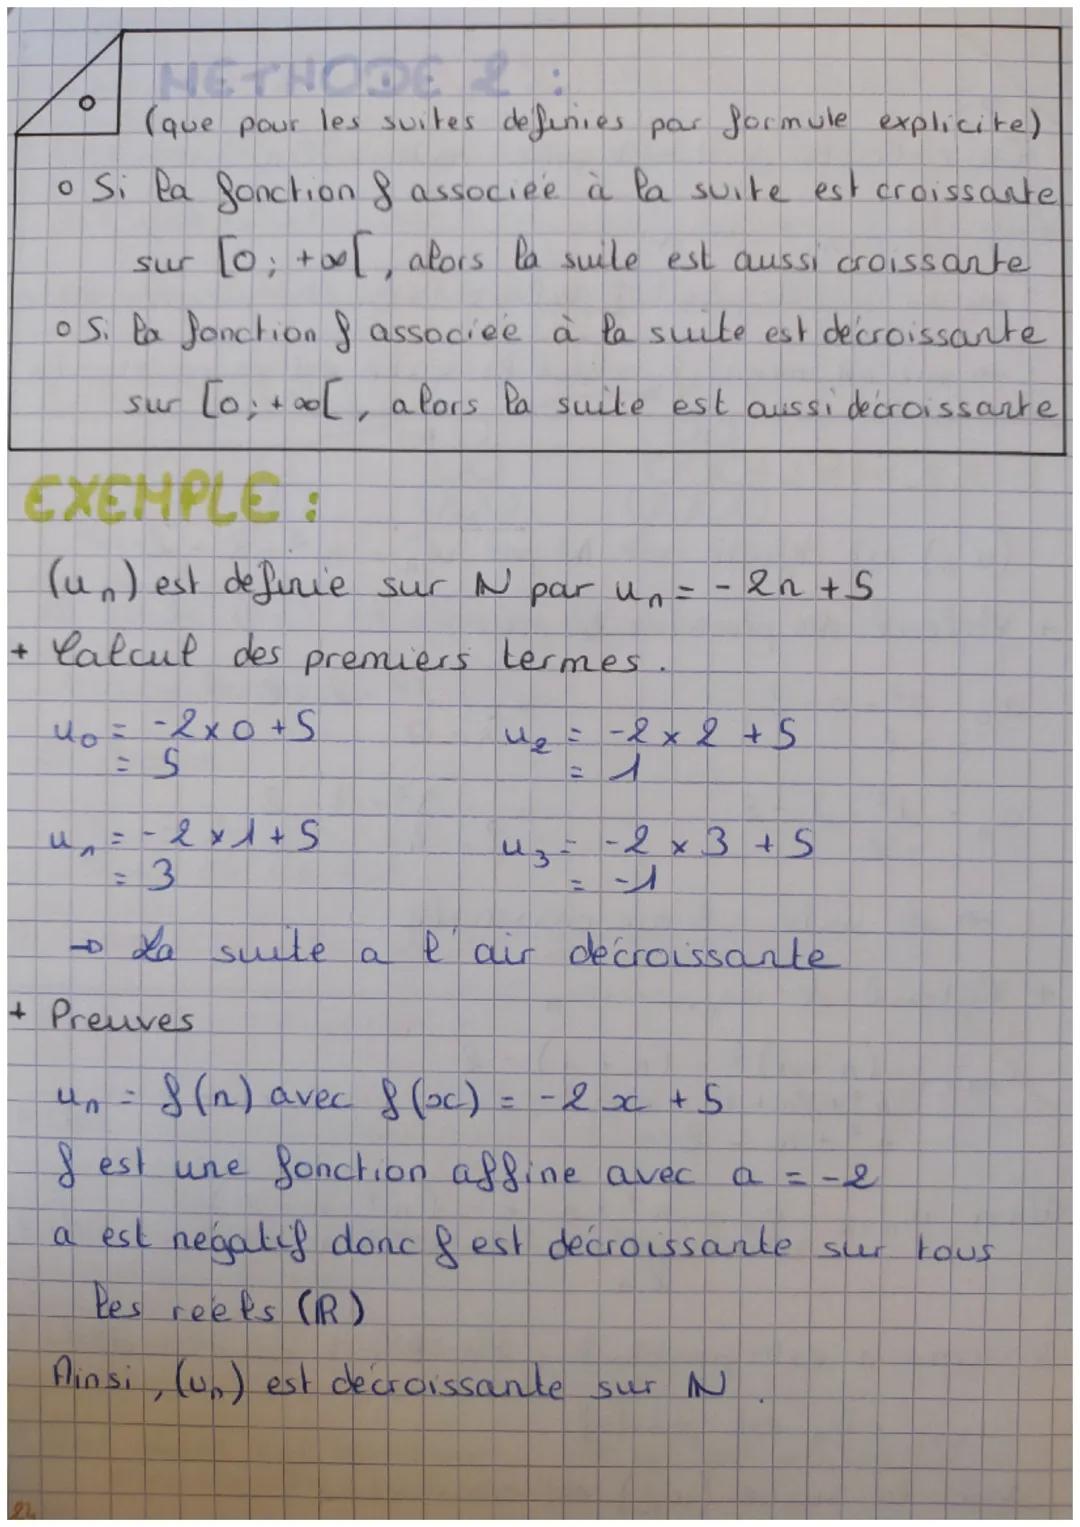 METHODE 2 :
(que pour les suites définies par formule explicite)
o Si la fonction f associée à la suite est croissante
sur [0; +∞[, alors la suite est aussi croissante
o Si la fonction f associée à la suite est décroissante
sur [0; +∞[, alors la suite est aussi décroissante
EXEMPLE :
(uₙ) est définie sur ℕ par uₙ = -2n + 5
+ Calcul des premiers termes.
u₀ = -2 x 0 + 5
= 5
u₂ = -2 x 2 + 5
= 1
u₁ = -2 x 1 + 5
= 3
u₃ = -2 x 3 + 5
= -1
→ La suite a l'air décroissante
+ Preuves
uₙ = f(n) avec f(x) = -2x + 5
f est une fonction affine avec a = -2
a est négatif donc f est décroissante sur tous
les réels (ℝ)
Ainsi, (uₙ) est décroissante sur ℕ.